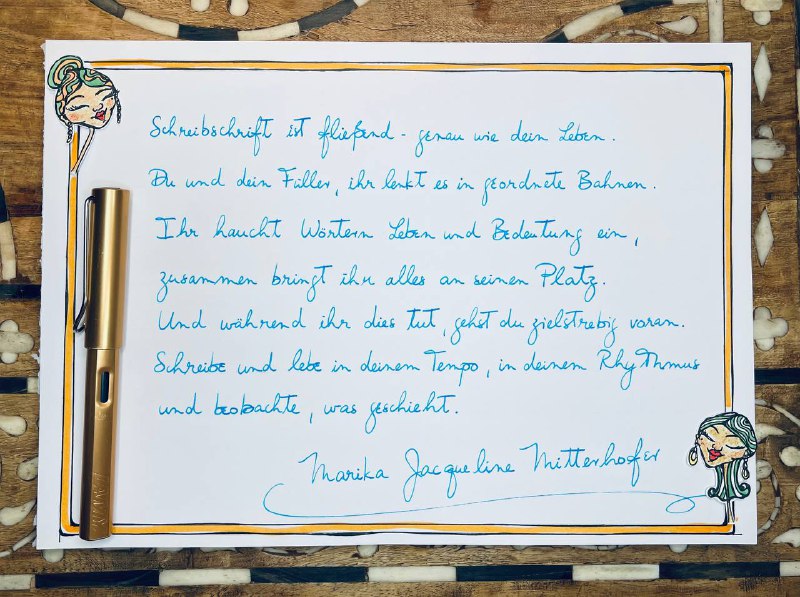 Schreibschrift ist fließend - genau wie dein Leben.
Du und dein Füller, ihr lenkt es in geordnete Bahnen.
Ihr haucht Wörtern Leben und Bedeutung ein,
zusammen bringt ihr alles an seinen Platz.
Und während ihr dies tut, gehst du zielstrebig voran.
Schreibe und lebe in deinem Tempo, in deinem Rhythmus
und beobachte, was geschieht.
Marika Jacqueline Mitterhofer
LAMY